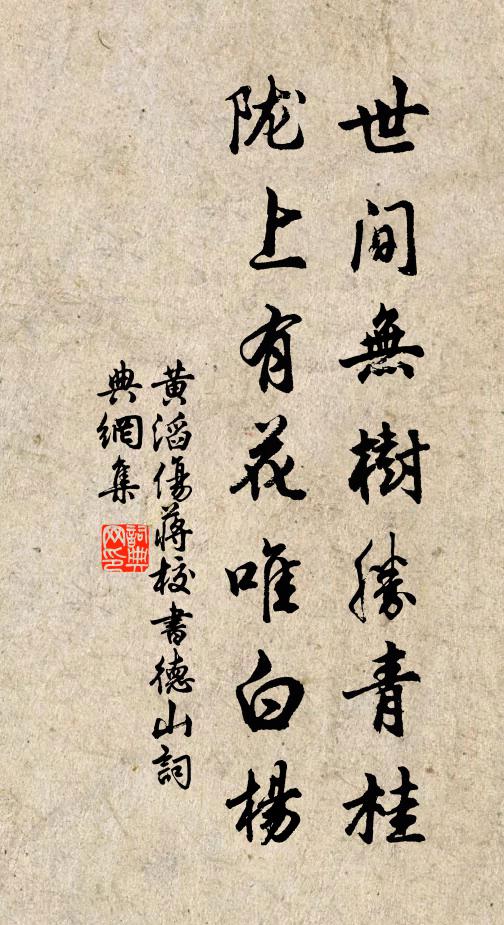 世间無樹勝青桂
陇上有花唯白楊
黄滔傷蔣校書德山詞
典網集
詞典
网印